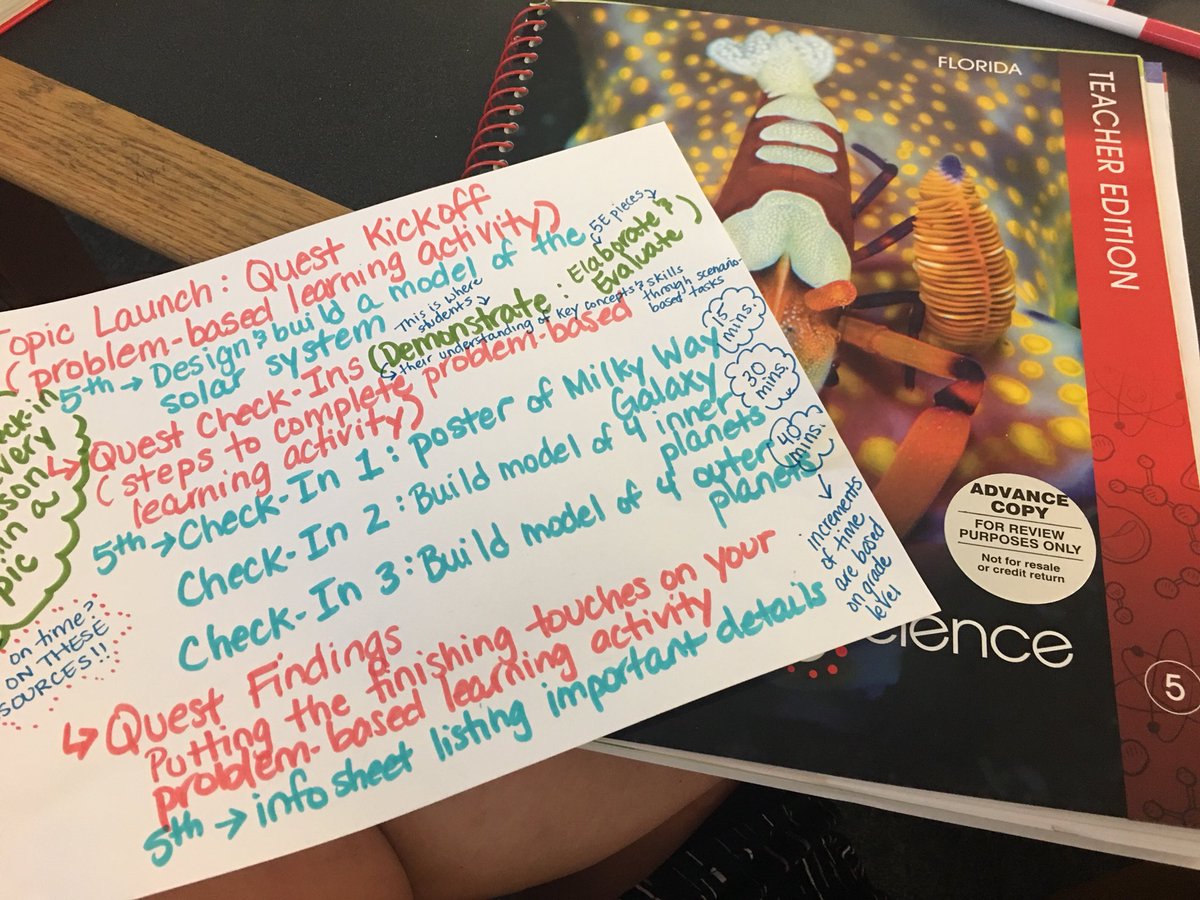 Topic Launch: Quest Kickoff
(problem-based learning activity)
5th → Design & build a model of the
solar system
This is where
students ↓
← 5E pieces ↘
↳ Quest Check-Ins (Demonstrate: Elaborate &
Evaluate)
↳ their understanding of key concepts & skills
through scenario-
based tasks
(steps to complete problem-based
learning activity)
5th → Check-In 1: poster of Milky Way
Galaxy
Check-In 2: Build model of 4 inner
planets
Check-In 3: Build model of 4 outer
planets
15
mins.
30
mins.
40
mins.
↓
increments
of time
are based
on grade
level
↳ Quest Findings
Putting the finishing touches on your
problem-based learning activity
5th → info sheet listing important details
every
in a
on time?
ON THESE
FLORIDA
TEACHER EDITION
ADVANCE
COPY
FOR REVIEW
PURPOSES ONLY
Not for resale
or credit return
cience
5